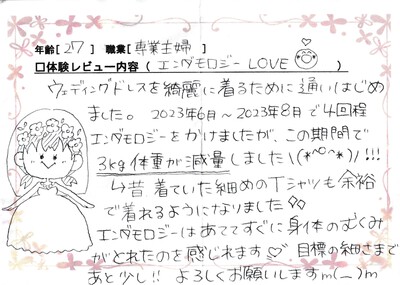 年齢[ 27 ] 職業[ 専業主婦 ]
口体験レビュー内容 ( エンダモロジー LOVE )
ウェディングドレスを綺麗に着るために通いはじめ
ました。2023年6月〜2023年8月で4回程
エンダモロジーをかけましたが、この期間で
3kg体重が減量しました\(*^○^*)/!!!
↳昔着ていた細めのTシャツも余裕
で着れるようになりました◇◇
エンダモロジーはあててすぐに身体のむくみ
がとれたのを感じれます♡ 目標の細さまで
あと少し!! よろしくお願いしますm(_)m